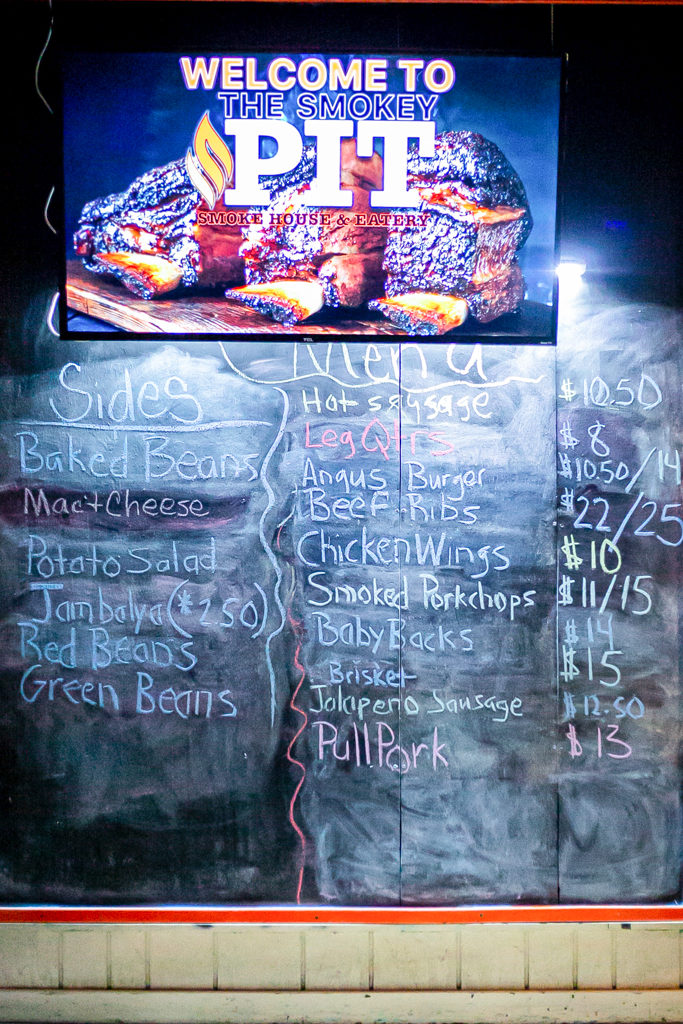 WELCOME TO
THE SMOKEY
PIT
SMOKE HOUSE & EATERY
TCL
Menu
Sides
Baked Beans
Mac+Cheese
Potato Salad
Jambalya (*2.50)
Red Beans
Green Beans
Hot sausage $10.50
Leg Qtrs $8
Angus Burger $10.50/14
Beef Ribs $22/25
Chicken Wings $10
Smoked Porkchops $11/15
Baby Backs $14
Brisket $15
Jalapeno Sausage $12.50
Pull Pork $13